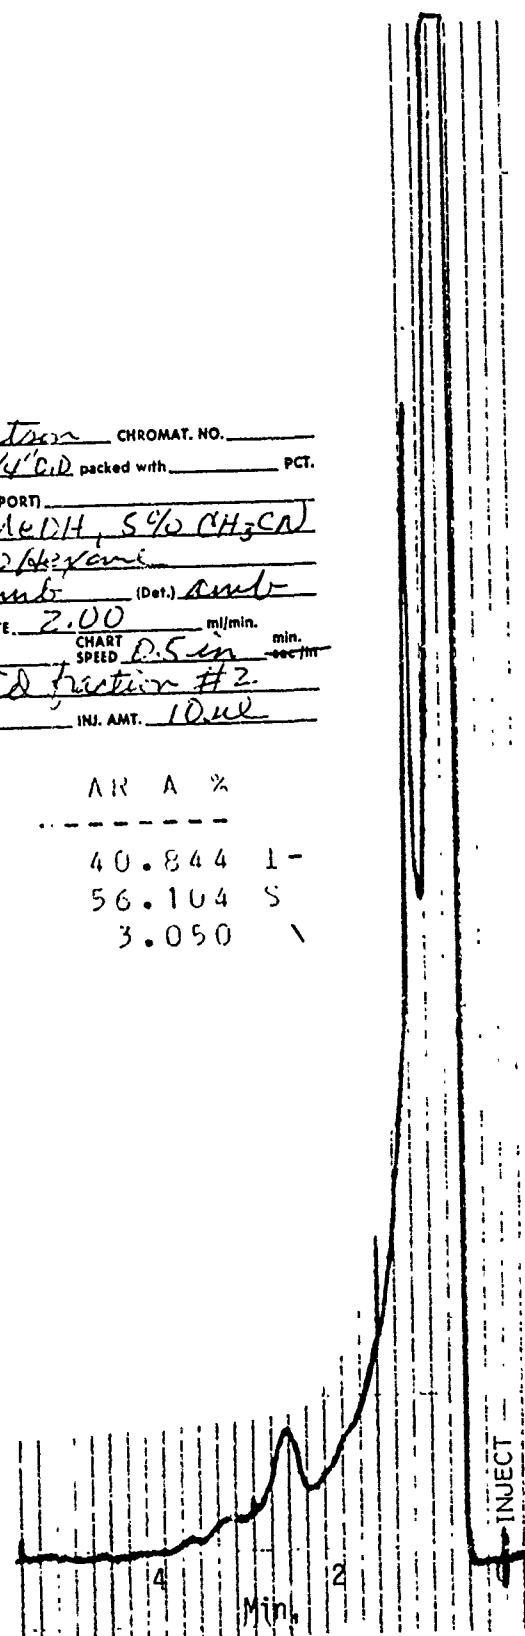 CHROMAT. NO.
1/4" O.D packed with PCT.
PORT)
MeOH, 5% CH3CN
Hexane
amb (Det.) amb
2.00 ml/min.
CHART SPEED 0.5 in min. sec/in
fraction #2.
INJ. AMT. 10 ul
AR A %
--------
40.844 1-
56.104 S
3.050 \
INJECT
4 2
Min.